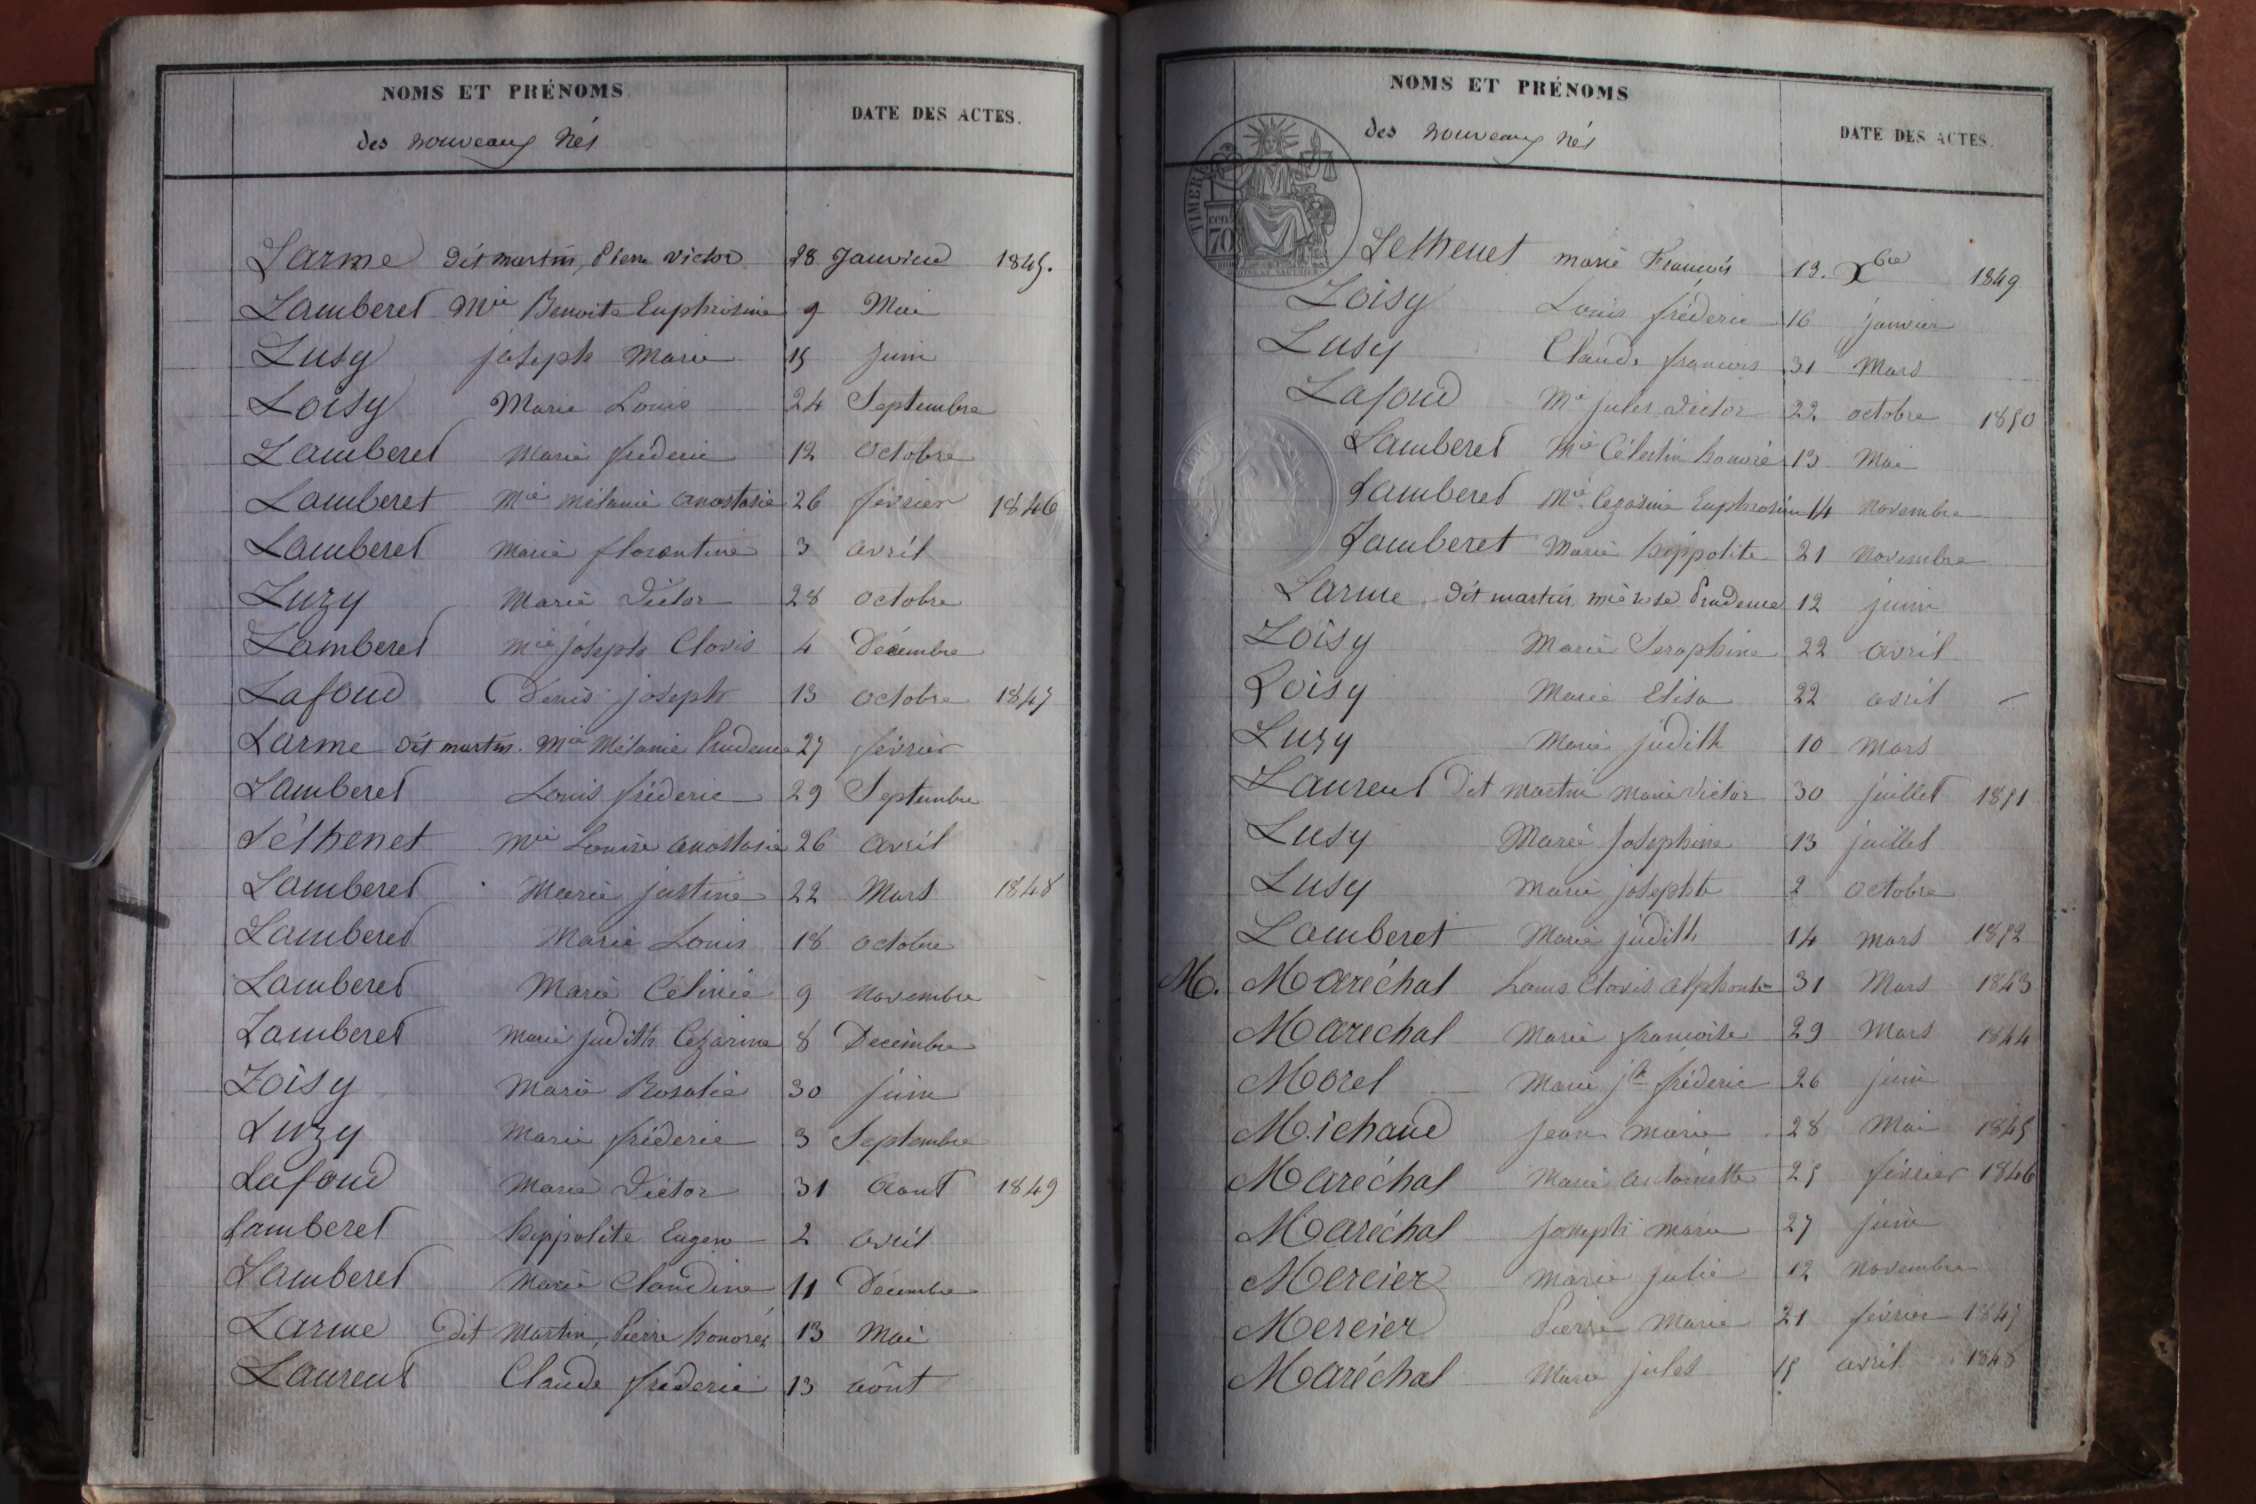 NOMS ET PRÉNOMS
des nouveaux Nés
DATE DES ACTES.
Larme dit martin, Pierre victor 28 Janvier 1845.
Lamberet Mie Benoite Euphrosine 9 Mai
Lusy joseph Marie 15 juin
Loisy Marie Louis 24 Septembre
Lamberet Marie fréderic 12 Octobre
Lamberet Mie Mélanie anastasie 26 février 1846
Lamberet Marie florentine 3 avril
Luzy Marie Victor 28 octobre
Lamberet Mie joseph Clovis 4 Décembre
Lafond Denis joseph 13 octobre 1847
Larme dit martin. Mie Mélanie Prudence 27 février
Lamberet Louis fréderic 29 Septembre
Léthenet Mie Louise anastasie 26 avril
Lamberet Marie justine 22 Mars 1848
Lamberet Marie Louis 18 octobre
Lamberet Marie Célinie 9 novembre
Lamberet Marie judith Cézarine 8 Décembre
Loisy Marie Rosalie 30 juin
Luzy Marie fréderic 3 Septembre
Lafond Marie Victor 31 Aout 1849
Lamberet hippolite Eugene 2 avril
Lamberet Marie Claudine 11 Décembre
Larme dit Martin, Pierre honoré 13 Mai
Laurent Claude fréderic 13 août
NOMS ET PRÉNOMS
des nouveaux Nés
DATE DES ACTES.
TIMBRE
70
Lethenet marie François 13. Xbre 1849
Loisy Louis fréderic 16 janvier
Lusy Claude françois 31 Mars
Lafond Mie jules Victor 22 octobre 1850
Lamberet Mie Célestin honoré 13 Mai
Lamberet Mie Cezarine Euphrosine 14 Novembre
Lamberet Marie hippolite 21 Novembre
Larme dit martin mie Prudence 12 juin
Loisy Marie Séraphine 22 avril
Loisy Marie Elisa 22 avril
Luzy Marie judith 10 mars
Laurent Dit Martin Marie Victor 30 juillet 1851
Lusy Marie Joséphine 13 juillet
Lusy Marie joseph 2 octobre
Lamberet Marie judith 14 mars 1852
M. Maréchal Louis Clovis alphonse 31 Mars 1843
Marechal Marie françoise 29 Mars 1844
Morel Marie jh fréderic 26 juin
Michaud Jean marie 28 Mai 1845
Maréchal Marie antoinette 25 février 1846
Maréchal Joseph marie 27 juin
Mercier Marie julie 12 Novembre
Mercier Pierre Marie 21 février 1847
Maréchal Marie jules 15 avril 1848